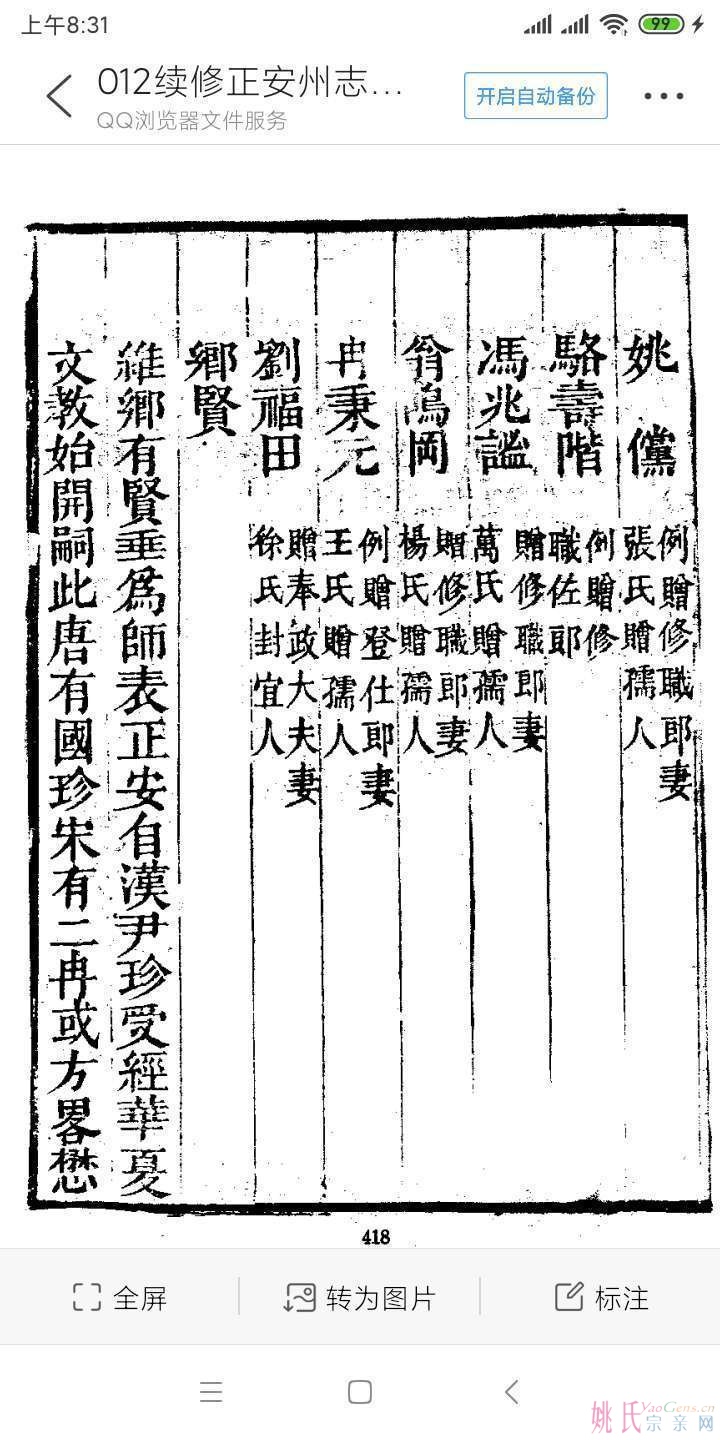 上午8:31
99
012续修正安州志...
QQ浏览器文件服务
开启自动备份
姚儻
例贈修職郎妻
張氏贈孺人
駱壽階
例贈修
職佐郎
馮兆謐
贈修職郎妻
萬氏贈孺人
鳴岡
贈修職郎妻
楊氏贈孺人
冉秉元
例贈登仕郎妻
王氏贈孺人
劉福田
贈奉政大夫妻
徐氏封宜人
鄉賢
維鄉有賢垂為師表正安自漢尹珍受經華夏
文教始開嗣此唐有國珍宋有二冉或方畧懋
418
全屏
转为图片
标注
姚氏YaoGens.cn
宗亲网